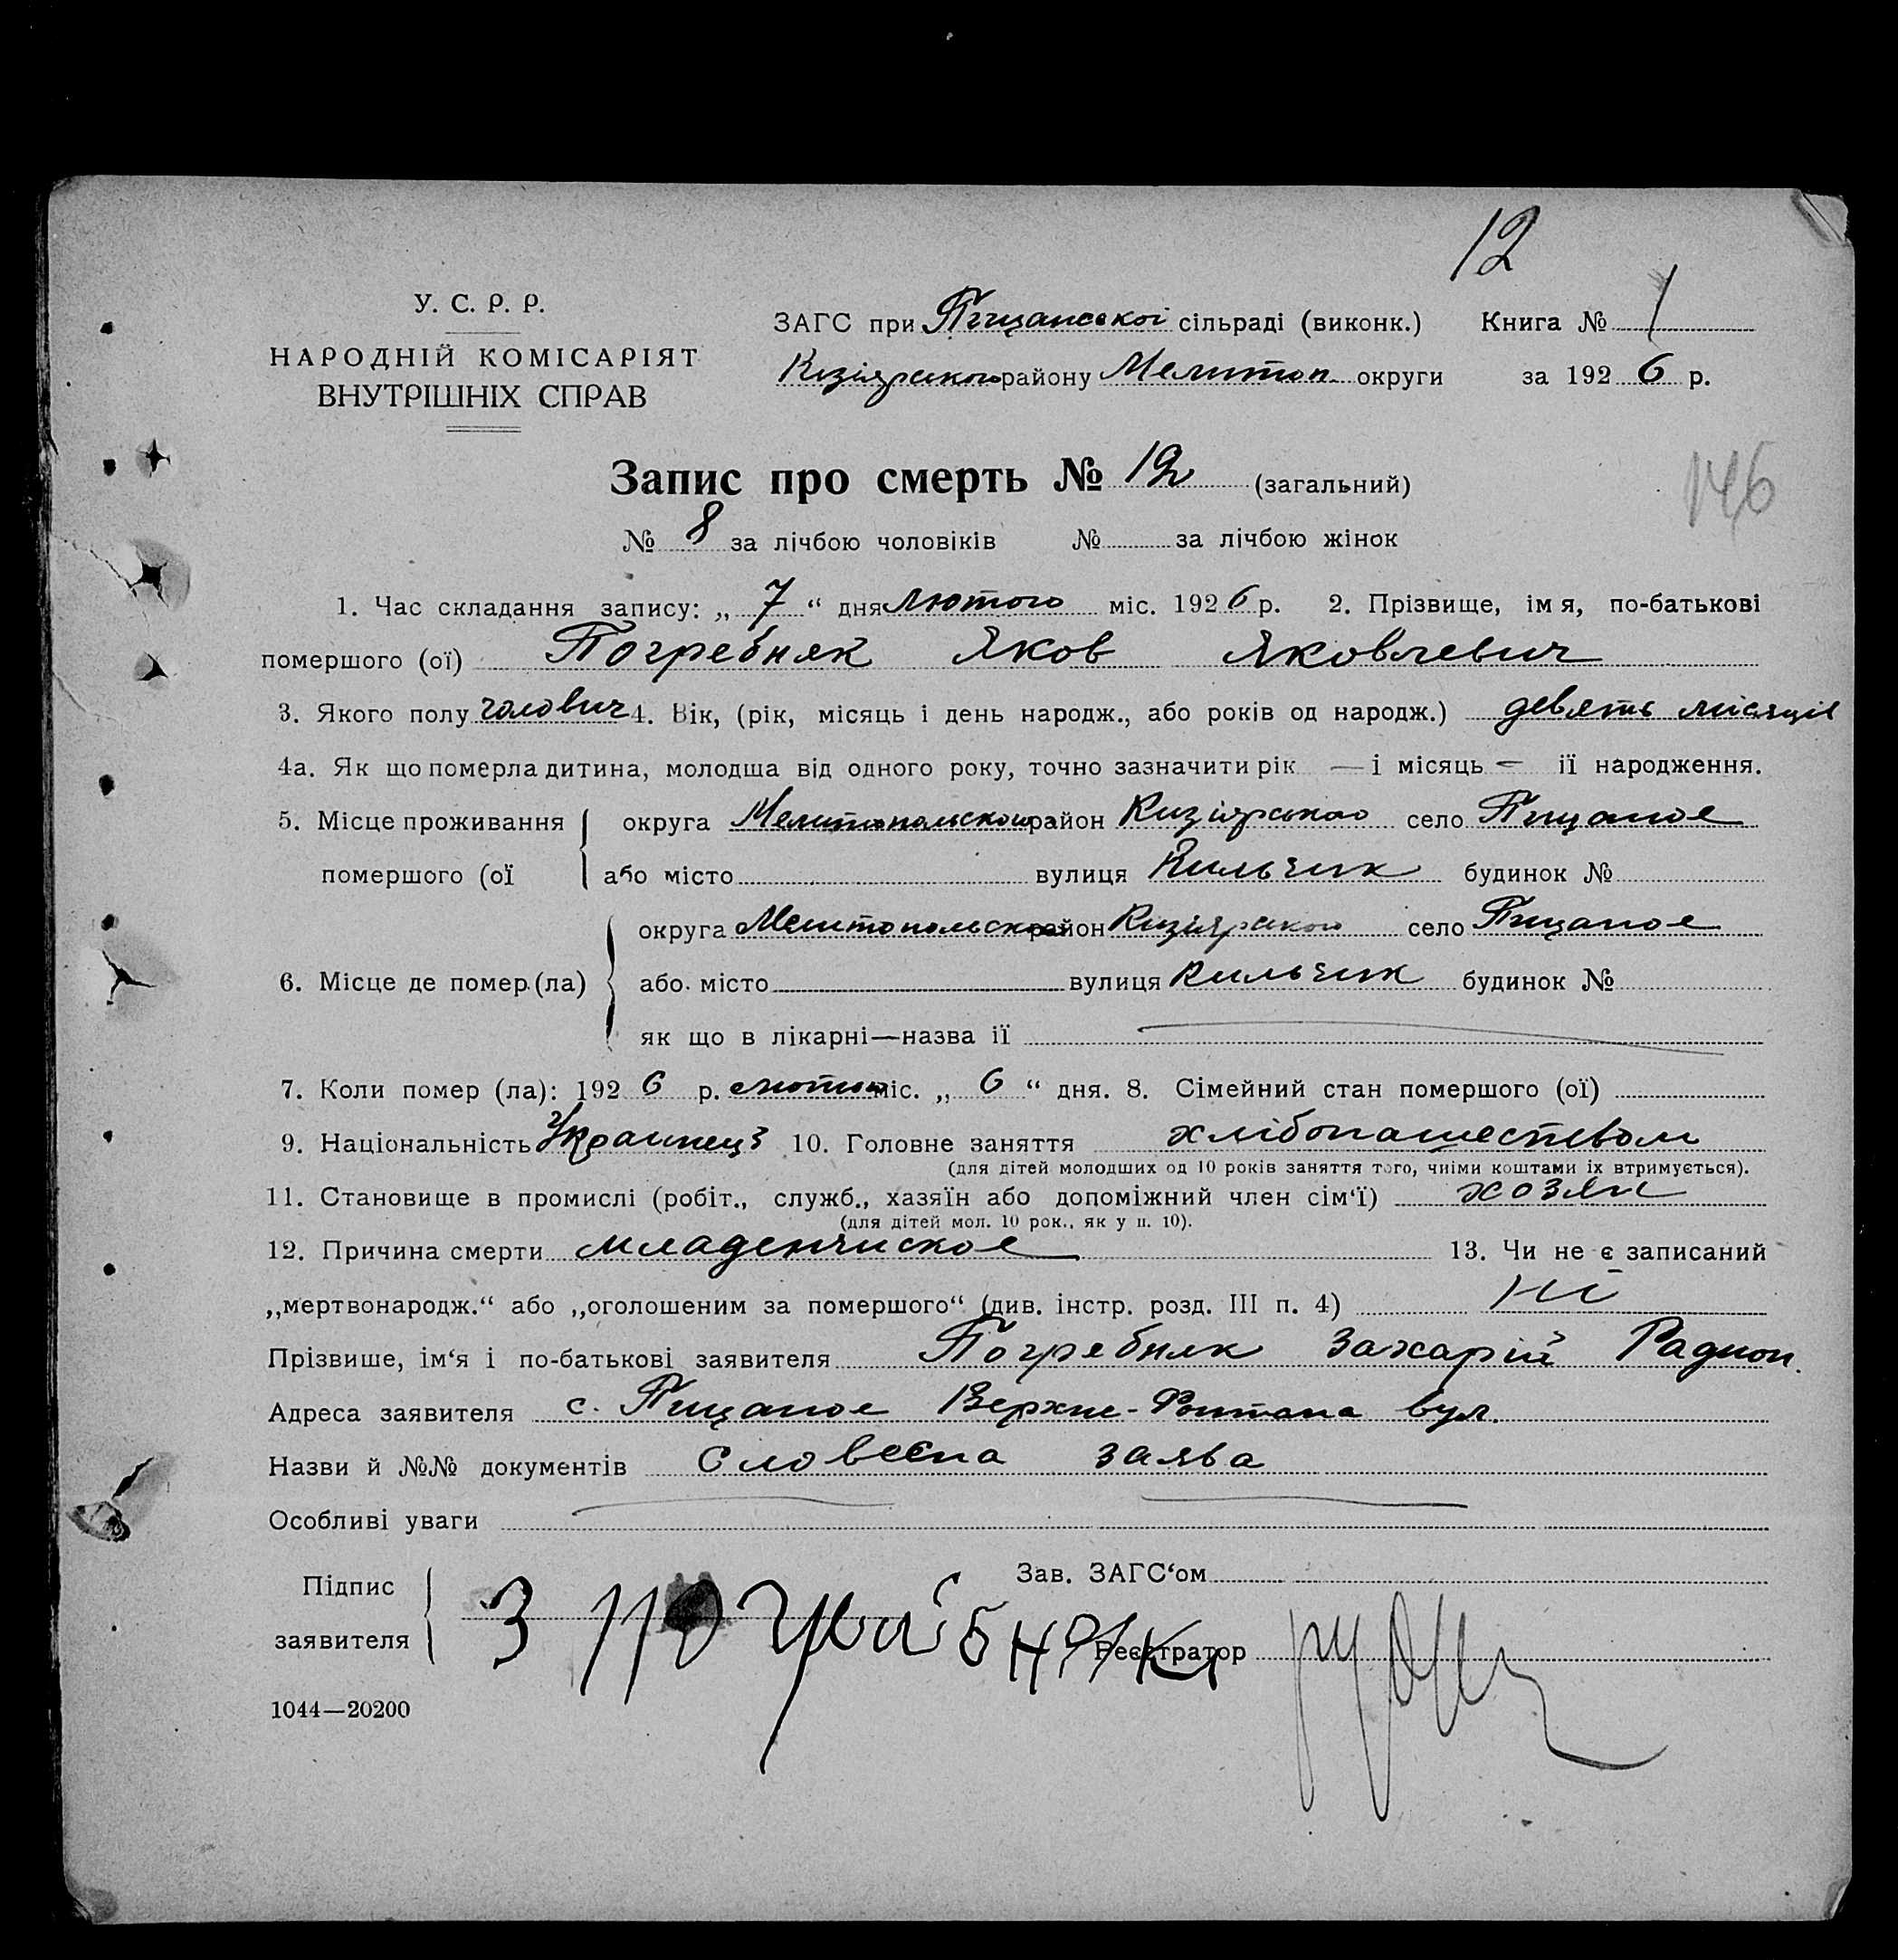 12
У. С. Р. Р.
НАРОДНІЙ КОМІСАРІЯТ
ВНУТРІШНІХ СПРАВ
ЗАГС при Пищанської сільраді (виконк.) Книга № 1
Кизіярського району Мелитоп. округи за 1926 р.
Запис про смерть № 12 (загальний)
146
№ 8 за лічбою чоловіків № за лічбою жінок
1. Час складання запису: „ 7 “ дня лютого міс. 1926 р. 2. Прізвище, імя, по-батькові
помершого (ої) Погребняк Яков Яковлевич
3. Якого полу чолович 4. Вік, (рік, місяць і день народж., або років од народж.) девять місяців
4а. Як що померла дитина, молодша від одного року, точно зазначити рік — і місяць — її народження.
5. Місце проживання округа Мелитопольского район Кизіярського село Пищаное
помершого (ої або місто вулиця Кильчик будинок №
округа Мелитопольско район Кизіярського село Пищаное
6. Місце де помер (ла) або місто вулиця Кильчик будинок №
як що в лікарні—назва її
7. Коли помер (ла): 1926 р. лютого міс. „ 6 “ дня. 8. Сімейний стан помершого (ої)
9. Національність Украинец 10. Головне заняття хлібопашеством
(для дітей молодших од 10 років заняття того, чиїми коштами їх втримується).
11. Становище в промислі (робіт., служб., хазяїн або допоміжний член сім‘ї) хозяин
(для дітей мол. 10 рок., як у п. 10).
12. Причина смерти младенчиское 13. Чи не є записаний
„мертвонародж.“ або „оголошеним за помершого“ (див. інстр. розд. III п. 4) ні
Прізвише, ім‘я і по-батькові заявителя Погребняк Захарій Радион.
Адреса заявителя с. Пищаное Верхне-Фонтана вул.
Назви й №№ документів Словесна заява
Особливі уваги
Підпис
заявителя
З Погребняк
Зав. ЗАГС‘ом
Реєстратор
1044—20200